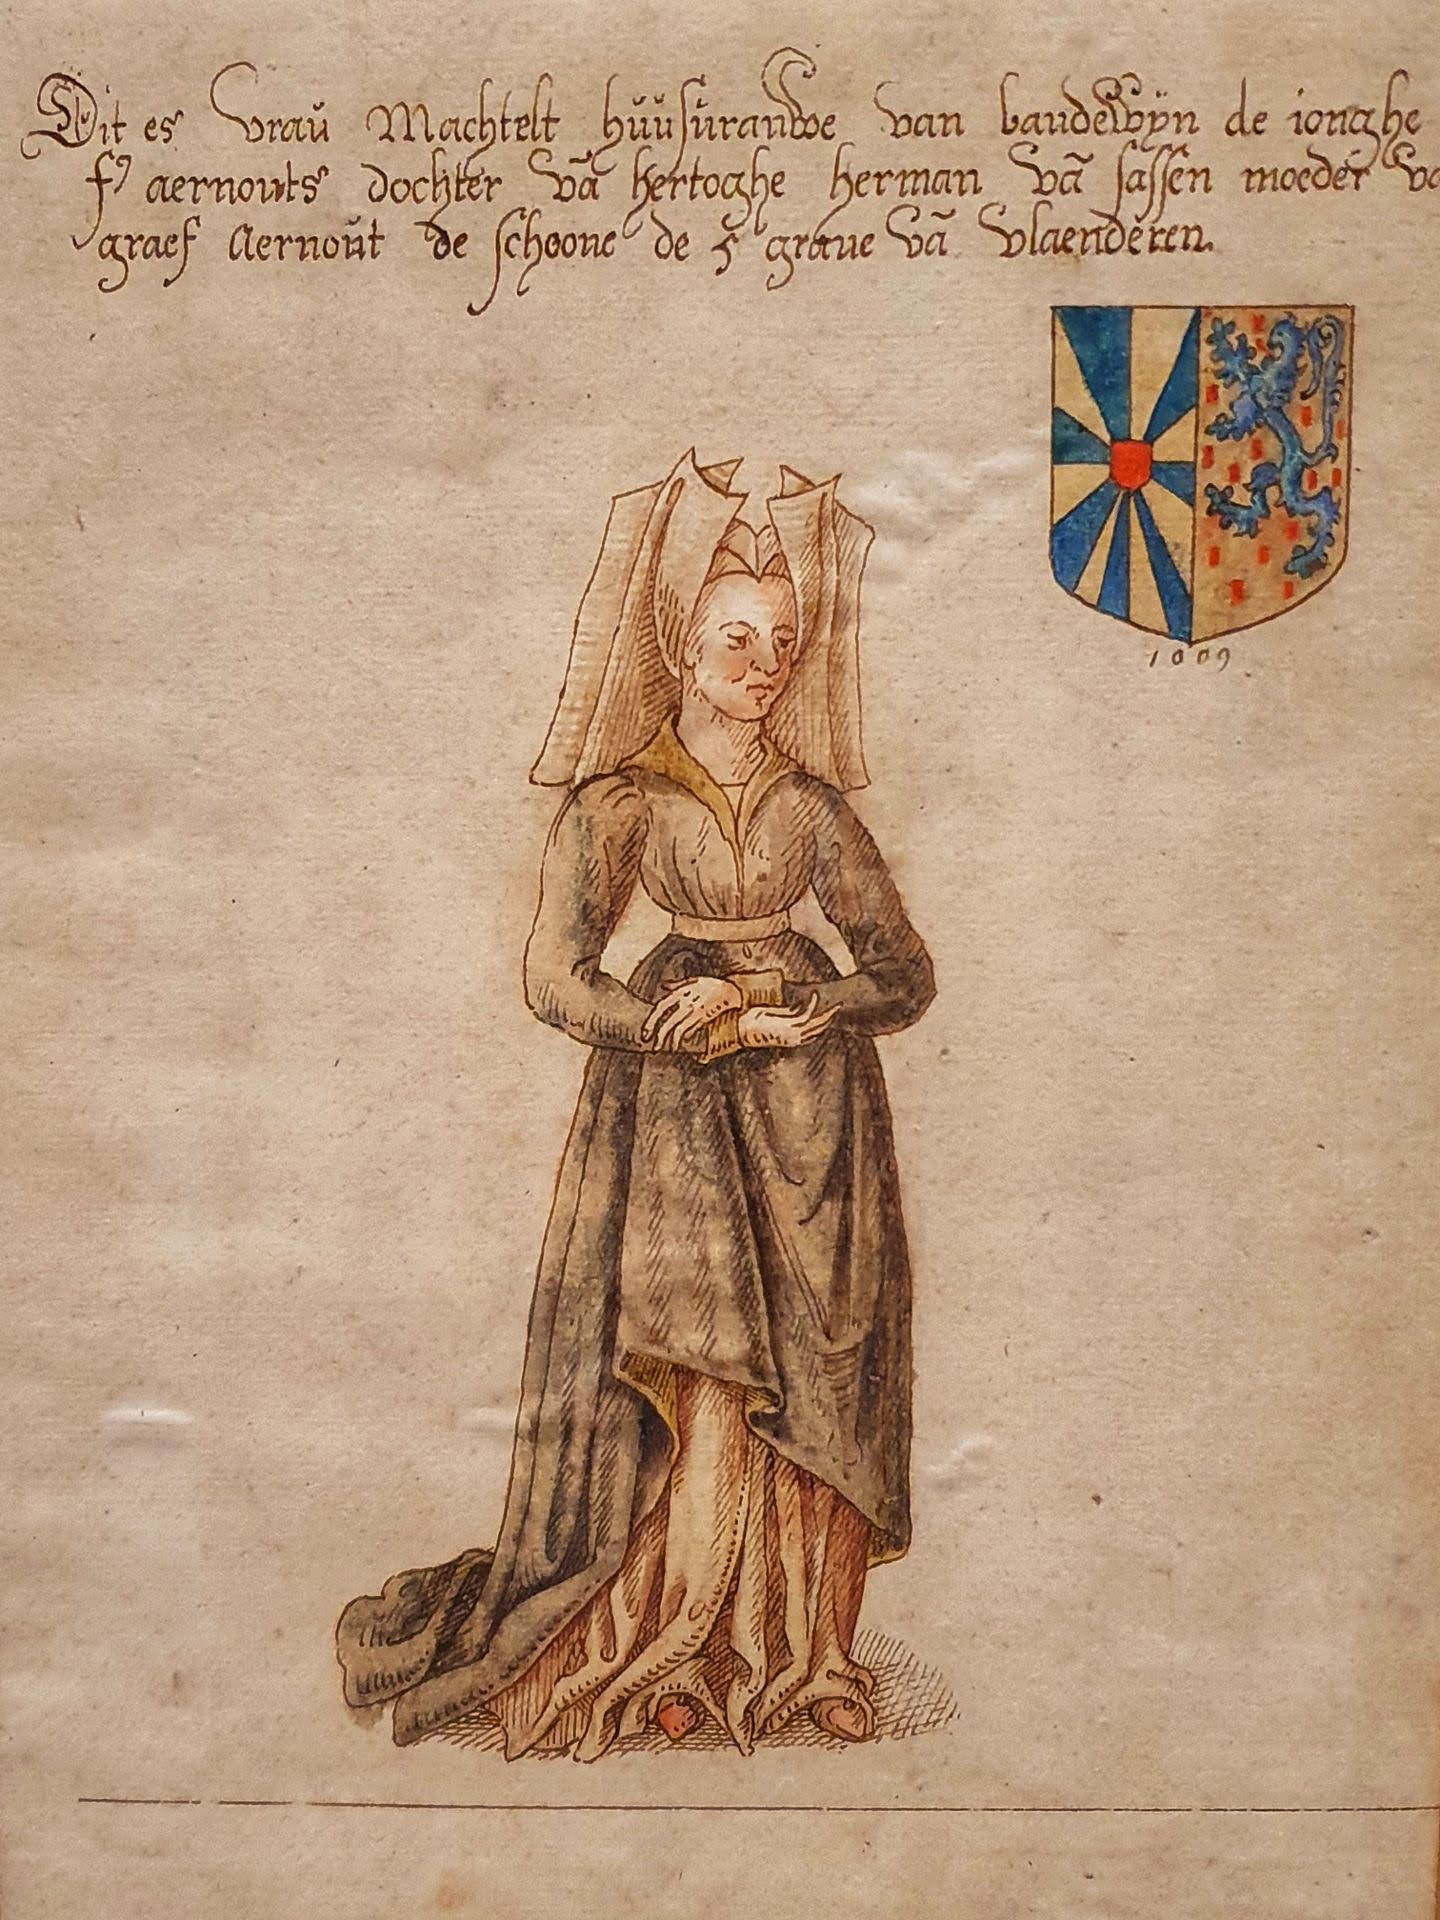 Dit es vraŭ Machtelt hŭŭsŭrauwe van baudewÿn de ionghe
fˀ aernouts dochter vā hertoghe herman vā sassen moeder va
graef Aernoŭt de schoone de 5 graue vā vlaenderen.
1009